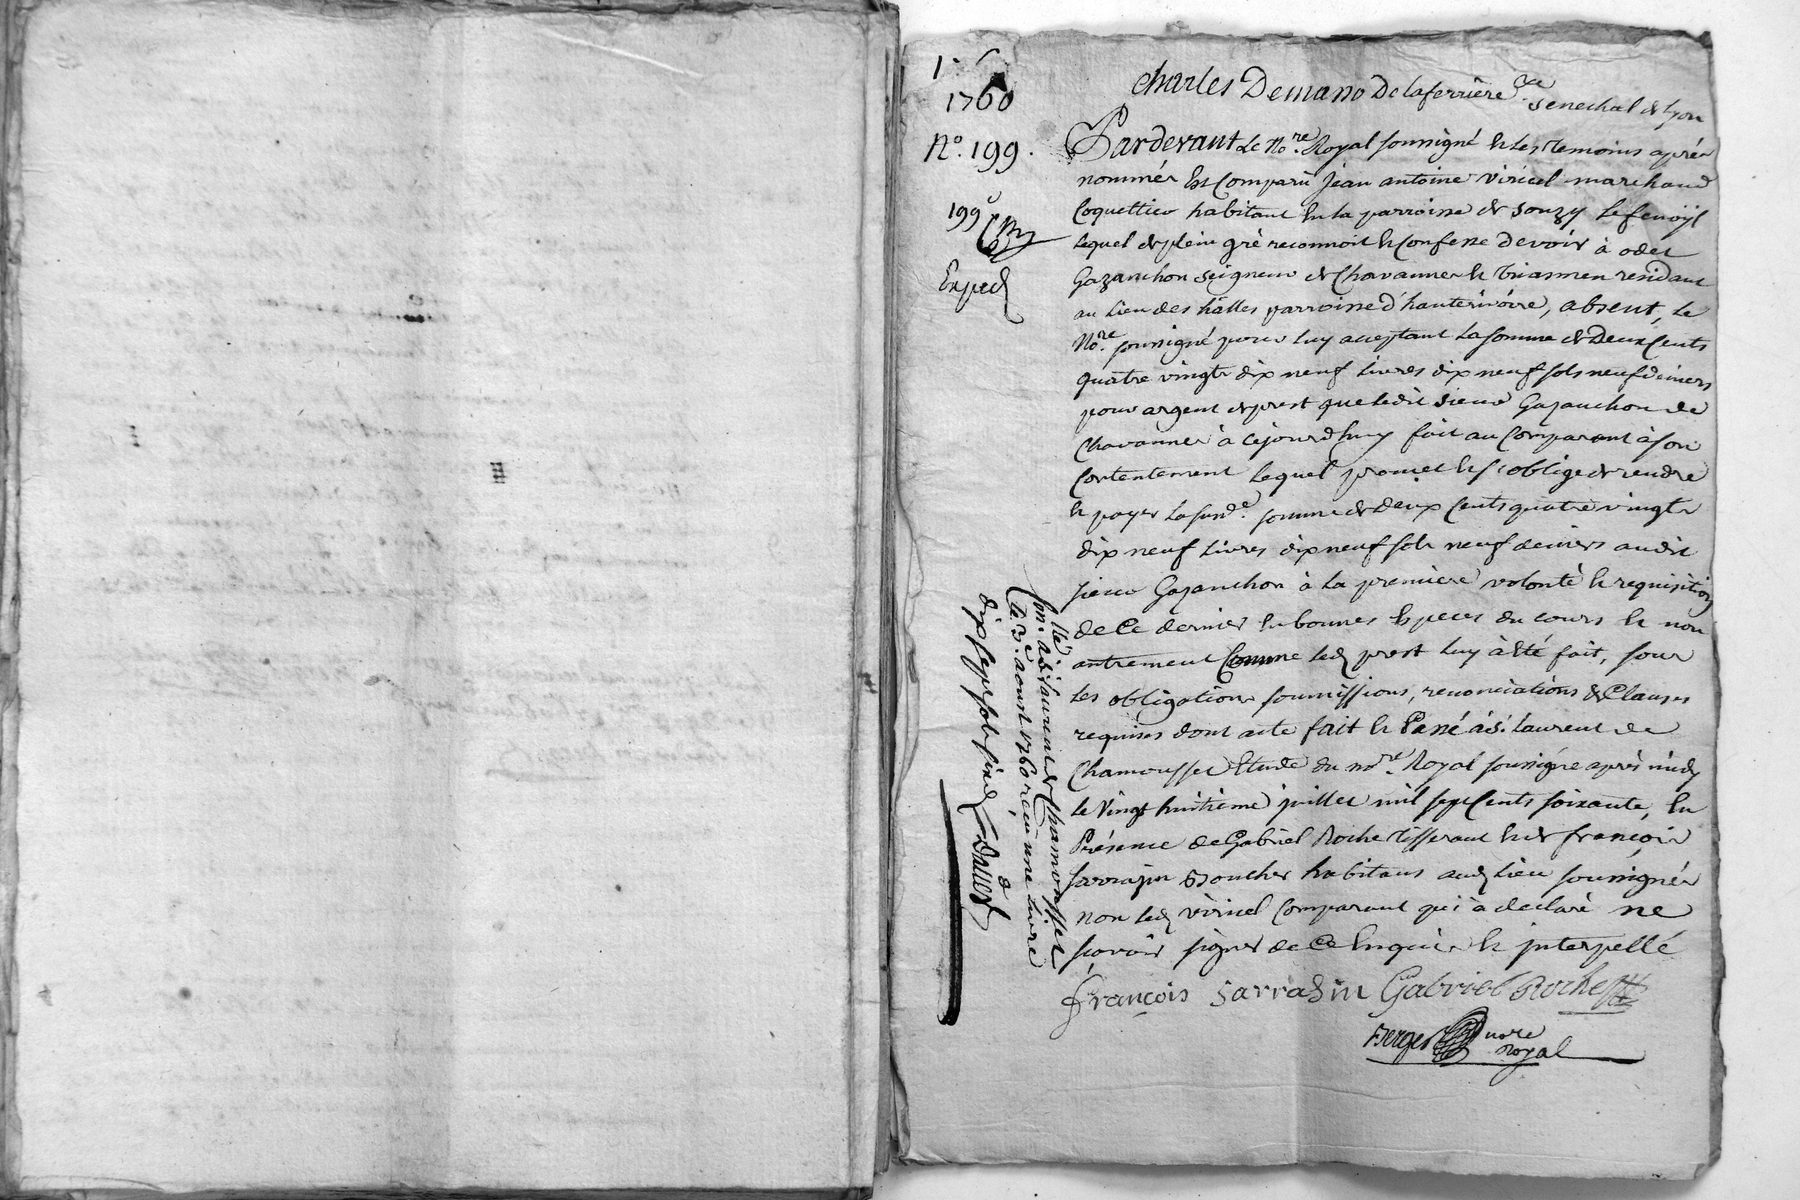 1.
1760
No. 199.
199e
Exped
Charles Demasso De laferriere &ce Senechal de Lyon
Pardevant Le No.re Royal soussigné et Les Temoins aprés
nommés Est Comparu Jean antoine viricel marchand
Coquettier habitant en la parroisse de Souzy
Lequel de plein gré reconnoit et Confesse devoir à odet
Gazanchon Seigneur de Chavannes et résidant
au Lieu des hâlles parroisse d'hauterivoire, absent, Le
No.re soussigné pour luy acceptant La somme de Deux Cents
quatre vingt dix neuf Livres dix neuf sols neuf deniers
pour argent de prest que Ledit Sieur Gazanchon de
Chavannes à cejourd'huy fait au Comparant à son
Contentement Lequel promet et s'oblige de rendre
et payer La susd.e somme de Deux Cents quatre vingt
dix neuf Livres dix neuf sols neuf deniers audit
Sieur Gazanchon à La premiere volonté et requisition
de Ce dernier En bonnes Especes du cours et non
autrement Comme Led prest Luy à été fait, sous
Les obligations soumissions, renonciations & Clauses
requises dont acte fait et Passé à St. Laurent de
Chamousset Etude du no.re Royal soussigné après midy
Le Vingt huitieme juillet mil sept Cents soixante, En
Présence de Gabriel Roche Tisserant et de françois
Sarrazin Boucher habitans aud Lieu soussignés
non Led viricel Comparant qui à declaré ne
sçavoir signer de Ce Enquis et jnterpellé
françois Sarrasin Gabriel Roche
Berger nore
Royal
Con.llé à St Laurent de Chamousset
Le 3e aoust 1760 reçu une Livre
dix sept sols six d